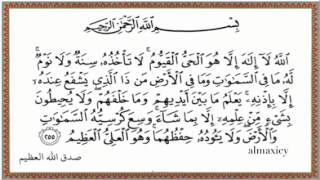 بِسْمِ اللَّهِ الرَّحْمَٰنِ الرَّحِيمِ
اللَّهُ لَا إِلَٰهَ إِلَّا هُوَ الْحَيُّ الْقَيُّومُ ۚ لَا تَأْخُذُهُ سِنَةٌ وَلَا نَوْمٌ ۚ
لَهُ مَا فِي السَّمَاوَاتِ وَمَا فِي الْأَرْضِ ۗ مَنْ ذَا الَّذِي يَشْفَعُ عِنْدَهُ
إِلَّا بِإِذْنِهِ ۚ يَعْلَمُ مَا بَيْنَ أَيْدِيهِمْ وَمَا خَلْفَهُمْ ۖ وَلَا يُحِيطُونَ
بِشَيْءٍ مِنْ عِلْمِهِ إِلَّا بِمَا شَاءَ ۚ وَسِعَ كُرْسِيُّهُ السَّمَاوَاتِ
وَالْأَرْضَ ۖ وَلَا يَئُودُهُ حِفْظُهُمَا ۚ وَهُوَ الْعَلِيُّ الْعَظِيمُ ٢٥٥
صدق الله العظيم
almaxicy